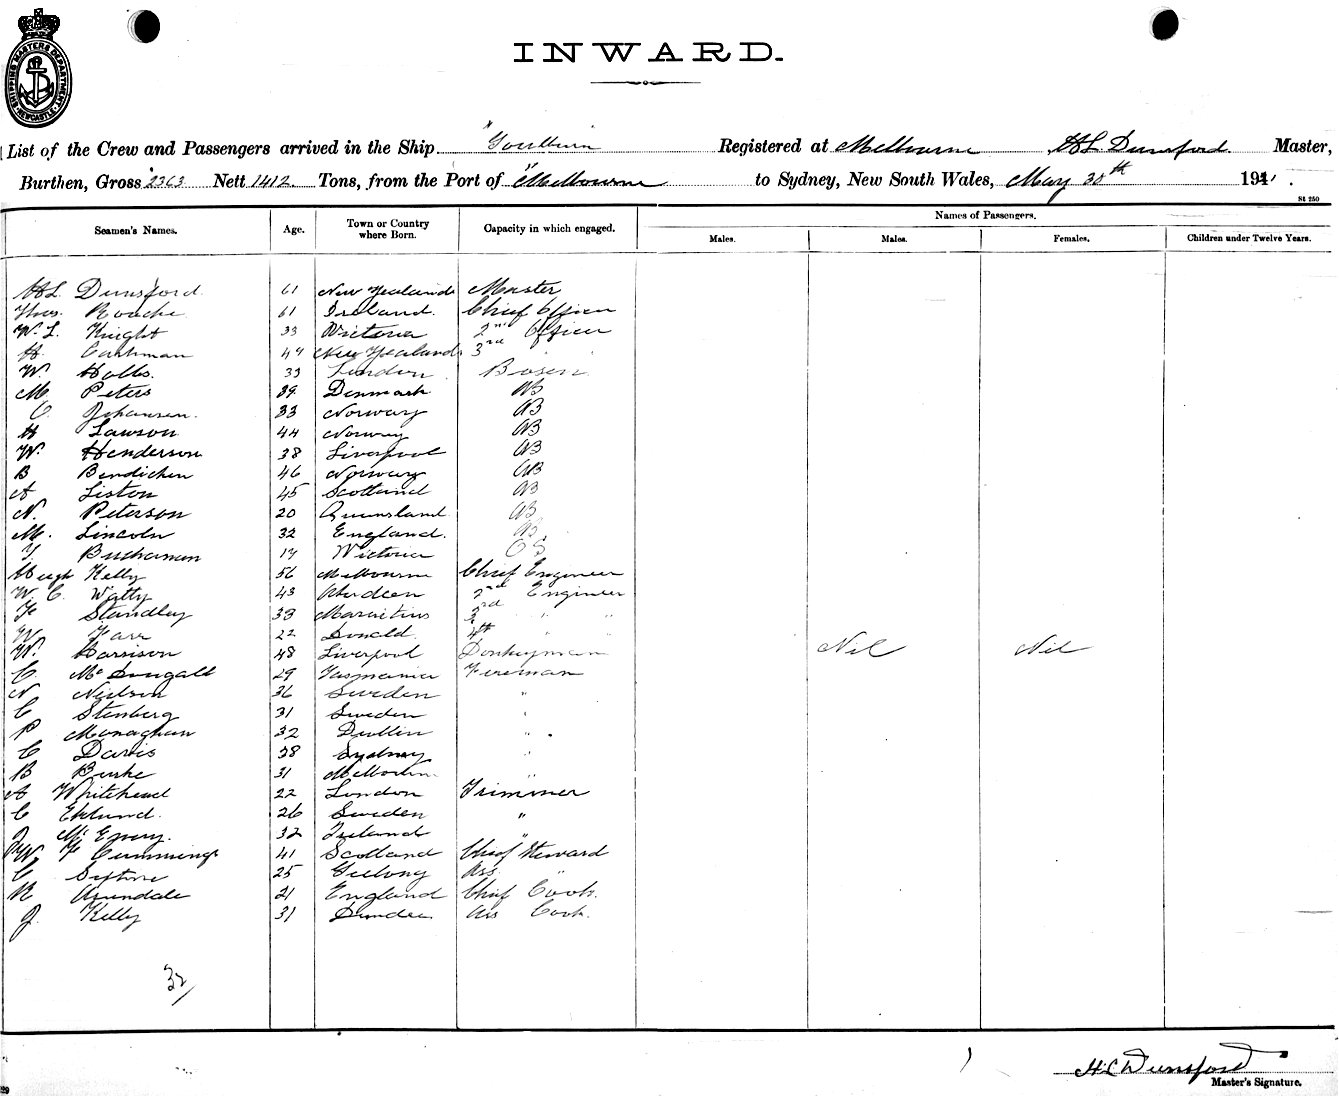 SHIPPING MASTERS DEPARTMENT NEWCASTLE
INWARD.
List of the Crew and Passengers arrived in the Ship "Goulburn" Registered at Melbourne HL Dunsford Master,
Burthen, Gross 2363 Nett 1412 Tons, from the Port of Melbourne to Sydney, New South Wales, May 30th 191
St 250
Seamen's Names. Age. Town or Country where Born. Capacity in which engaged. Names of Passengers.
Males. Males. Females. Children under Twelve Years.
HL Dunsford. 61 New Zealand Master
Thos. Roache 61 Ireland. Chief Officer
W. L. Knight 33 Victoria 2nd Officer
H. Cashman New Zealand 3rd
W. Hobbs. 33 London Bosun
M. Peters 39 Denmark AB
C. Johansen. 33 Norway AB
H Lawson 44 Norway AB
W. Henderson 38 Liverpool AB
B Bendichen 46 Norway AB
A Liston 45 Scotland AB
N. Peterson 20 Queensland AB
M. Lincoln 32 England. AB
Buchanan Victoria OS
Hugh Kelly 56 Melbourne Chief Engineer
W. C. Watty 43 Aberdeen 2nd Engineer
F Standley 33 Mauritius 3rd " "
W Farr 22 Donald 4th " "
W. Harrison 48 Liverpool Donkeyman Nil Nil
C. McDougall 29 Tasmania Fireman
N Neilson 36 Sweden "
C Stenberg 31 Sweden "
P Monaghan 32 Dublin "
C Davis 38 Sydney "
B Burke 31 Melbourne "
A Whitehead 22 London Trimmer
C Eklund. 26 Sweden "
J McEnery. 32 Ireland "
W F Cummings 41 Scotland Chief Steward
C 25 Geelong Ass "
R Arundale 21 England Chief Cook.
J. Kelly 31 Dundee Ass Cook.
32
HL Dunsford
Master's Signature.